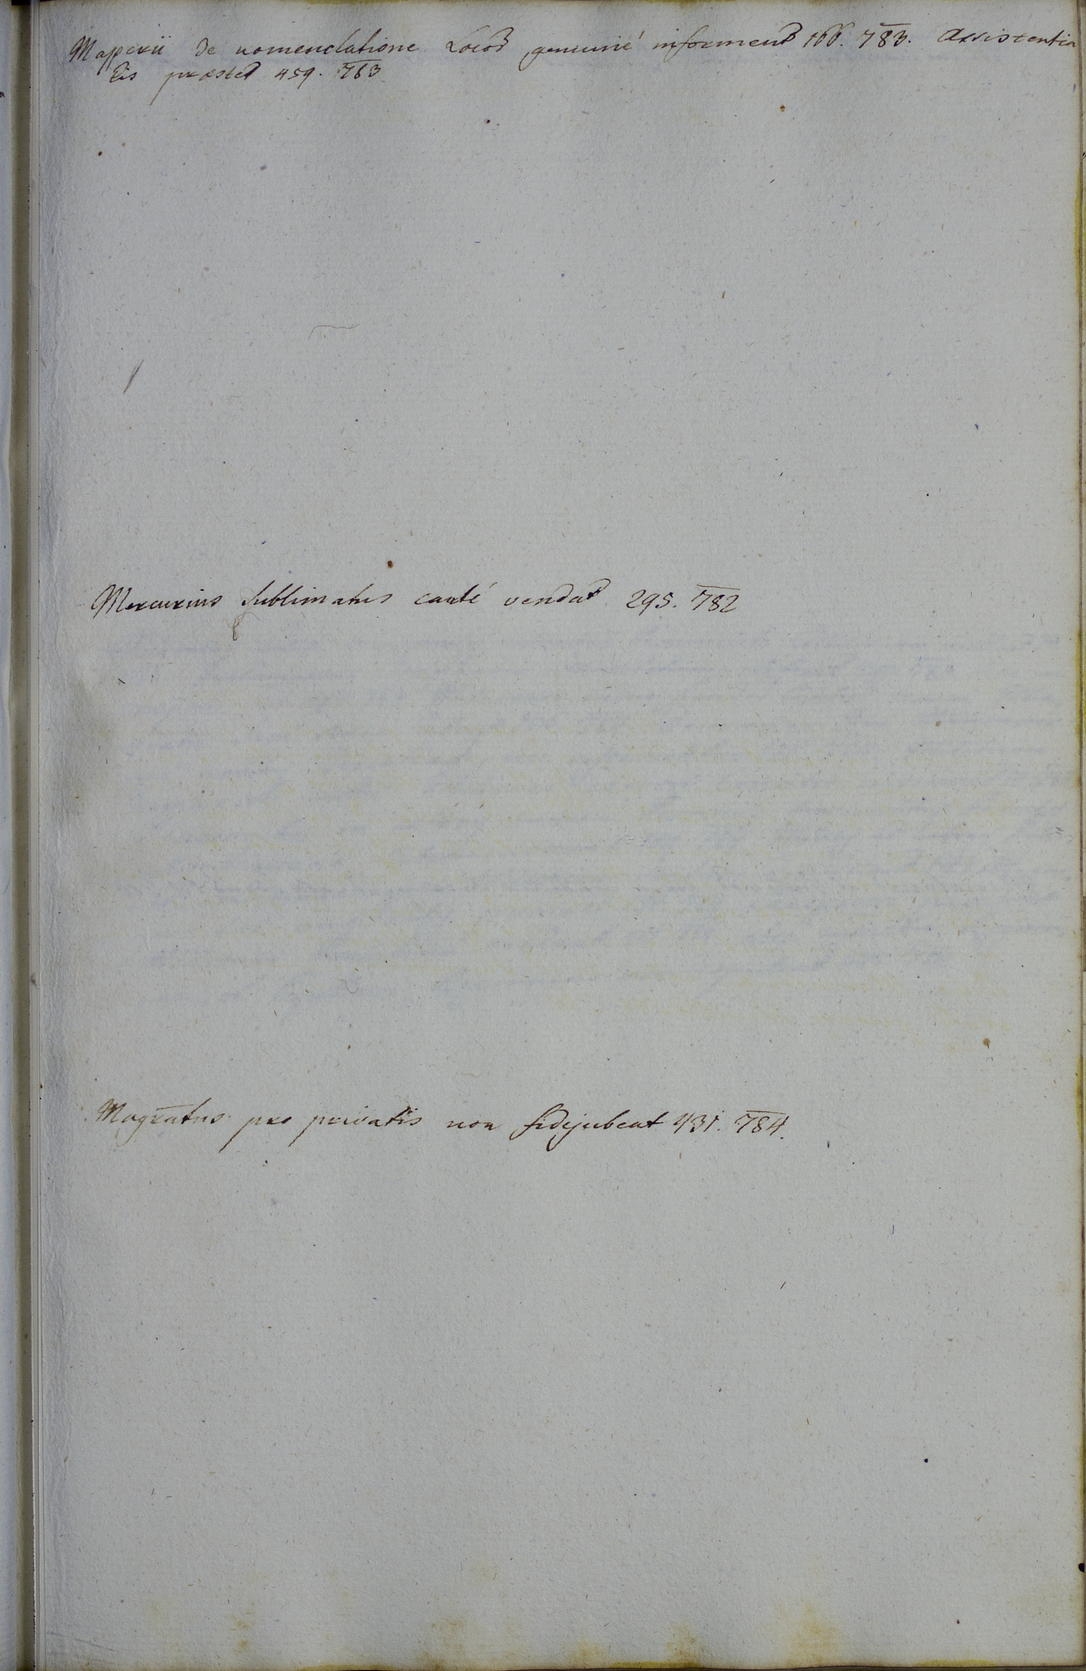 Mapperii de nomenclatione Locor genuinè informent 166. 783. Assistentia
Eis præstet 459. 783
Mercurius sublimatus cautè vendat 295. 782
Magratus pro privatis non fidejubeat 431. 784.